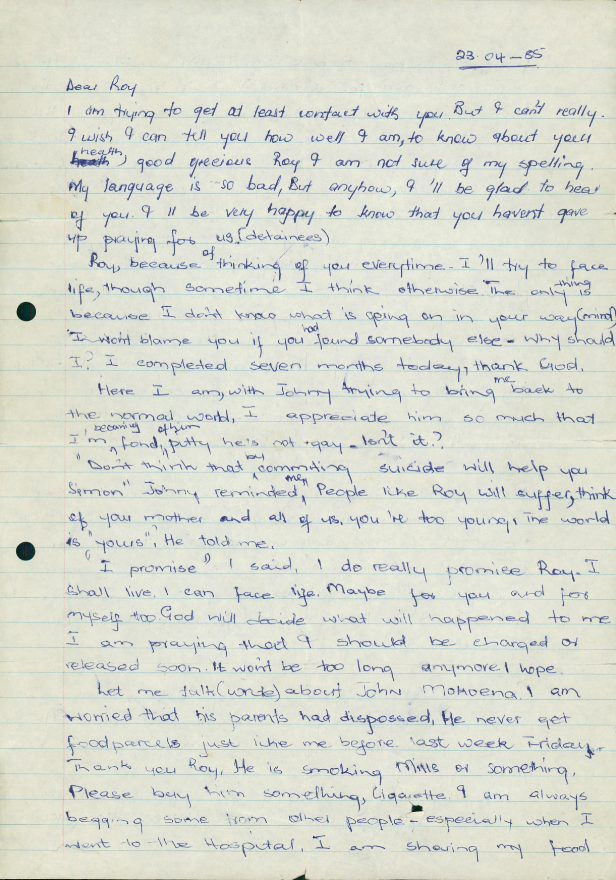 23-04-85
Dear Roy
I am trying to get at least contact with you. But I can't really.
I wish I can tell you how well I am, to know about your
health) good grecious Roy I am not sure of my spelling.
My language is so bad, But anyhow, I 'll be glad to hear
of you. I 'll be very happy to know that you havent gave
up praying for us. (detainees)
Roy, because of thinking of you everytime. I 'll try to face
life, though sometime I think otherwise. The only thing is
because I don't know what is going on in your way (mind)
I won't blame you if you had found somebody else - Why should
I? I completed seven months today, thank God.
Here I am, with Johnny trying to bring me back to
the normal world, I appreciate him so much that
I'm becoming fond of him, putty he's not gay - Isn't it?
"Don't think that by commiting suicide will help you
Simon" Johnny reminded me, People like Roy will suffer, think
of your mother and all of us, you 're too young, The world
is "yours", He told me.
"I promise" I said, I do really promise Roy. I
shall live, I can face life. Maybe for you and for
myself too. God will decide what will happened to me
I am praying that I should be charged or
released soon. It won't be too long anymore I hope.
Let me talk (write) about John Mohoena. I am
worried that his parents had dispossed, He never get
foodparcels just like me before last week Friday.
Thank you Roy, He is smoking Mills or something,
Please buy him something, Cigarette. I am always
begging some from other people - especially when I
went to the Hospital. I am sharing my food